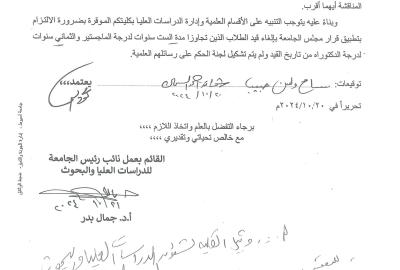 المناقشة أيهما أقرب.
وبناءً عليه يتوجب التنبيه على الأقسام العلمية وإدارة الدراسات العليا بكليتكم الموقرة بضرورة الالتزام
بتطبيق قرار مجلس الجامعة بإلغاء قيد الطلاب الذين تجاوزا مدة الست سنوات لدرجة الماجستير والثماني سنوات
لدرجة الدكتوراه من تاريخ القيد ولم يتم تشكيل لجنة الحكم على رسائلهم العلمية.
توقيعات: يعتمد،،،،
٢٠٢٤/١٠/٢٠
تحريراً في ٢٠٢٤/١٠/٢٠م
برجاء التفضل بالعلم واتخاذ اللازم ،،،،
مع خالص تحياتي وتقديري ،،،،
القائم بعمل نائب رئيس الجامعة
للدراسات العليا والبحوث
٢٠٢٤/١٠/٢١
أ.د. جمال بدر
وكيل الكلية لشئون الدراسات العليا والبحوث